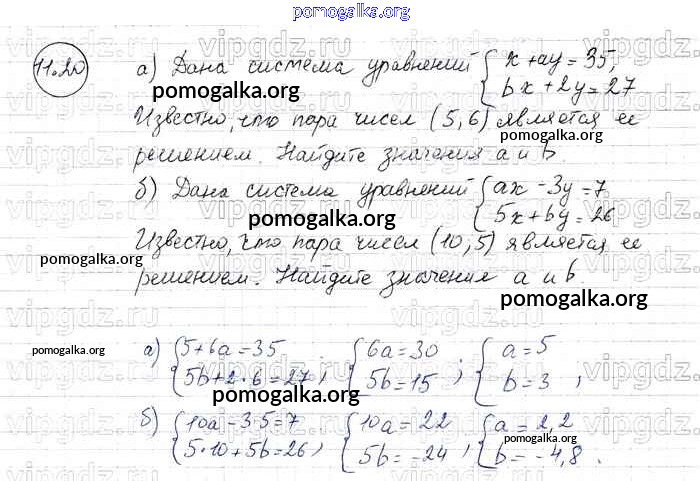 pomogalka.org
11.20 а) Дана система уравнений { x + ay = 35,
bx + 2y = 27
pomogalka.org
Известно, что пара чисел (5,6) является ее
pomogalka.org
решением. Найдите значения a и b.
б) Дана система уравнений { ax - 3y = 7
5x + by = 26
pomogalka.org
Известно, что пара чисел (10,5) является ее
pomogalka.org
решением. Найдите значения a и b.
pomogalka.org
pomogalka.org
а) { 5+6a=35 ; { 6a=30 ; { a=5
5b+2·6=27, 5b=15 b=3 ;
pomogalka.org
б) { 10a-3·5=7 { 10a=22 { a=2,2
5·10+5b=26, 5b=-24 ; b=-4,8.
pomogalka.org
pomogalka.org
vipgdz.ru